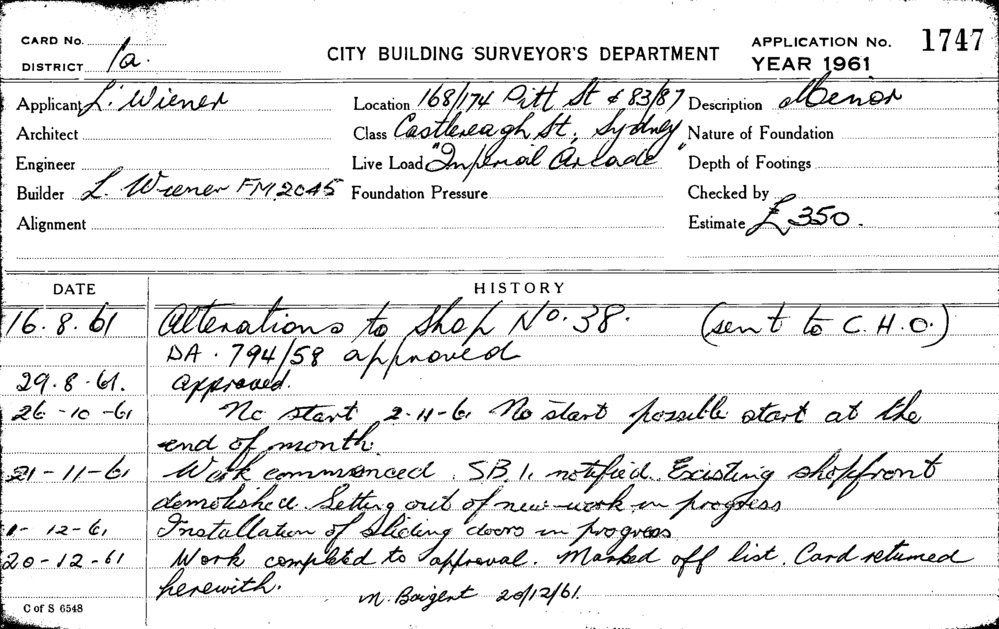 CARD No.
DISTRICT 1a.
CITY BUILDING SURVEYOR'S DEPARTMENT
APPLICATION No. 1747
YEAR 1961
Applicant L. Wiener
Location 168/174 Pitt St & 83/87
Description Minor
Architect
Class Castlereagh St, Sydney
Nature of Foundation
Engineer
Live Load "Imperial Arcade"
Depth of Footings
Builder L. Wiener FM2045
Foundation Pressure
Checked by
Alignment
Estimate £350.
DATE HISTORY
16.8.61 Alterations to Shop No. 38. (sent to C.H.O.)
DA. 794/58 approved
29.8.61. approved.
26-10-61 No start 2-11-61 No start possible start at the
end of month.
21-11-61 Work commenced. S.B.I. notified. Existing shopfront
demolished. Setting out of new work in progress
1-12-61 Installation of sliding doors in progress
20-12-61 Work completed to approval. Marked off list. Card returned
herewith. M. Bougent 20/12/61.
C of S 6548